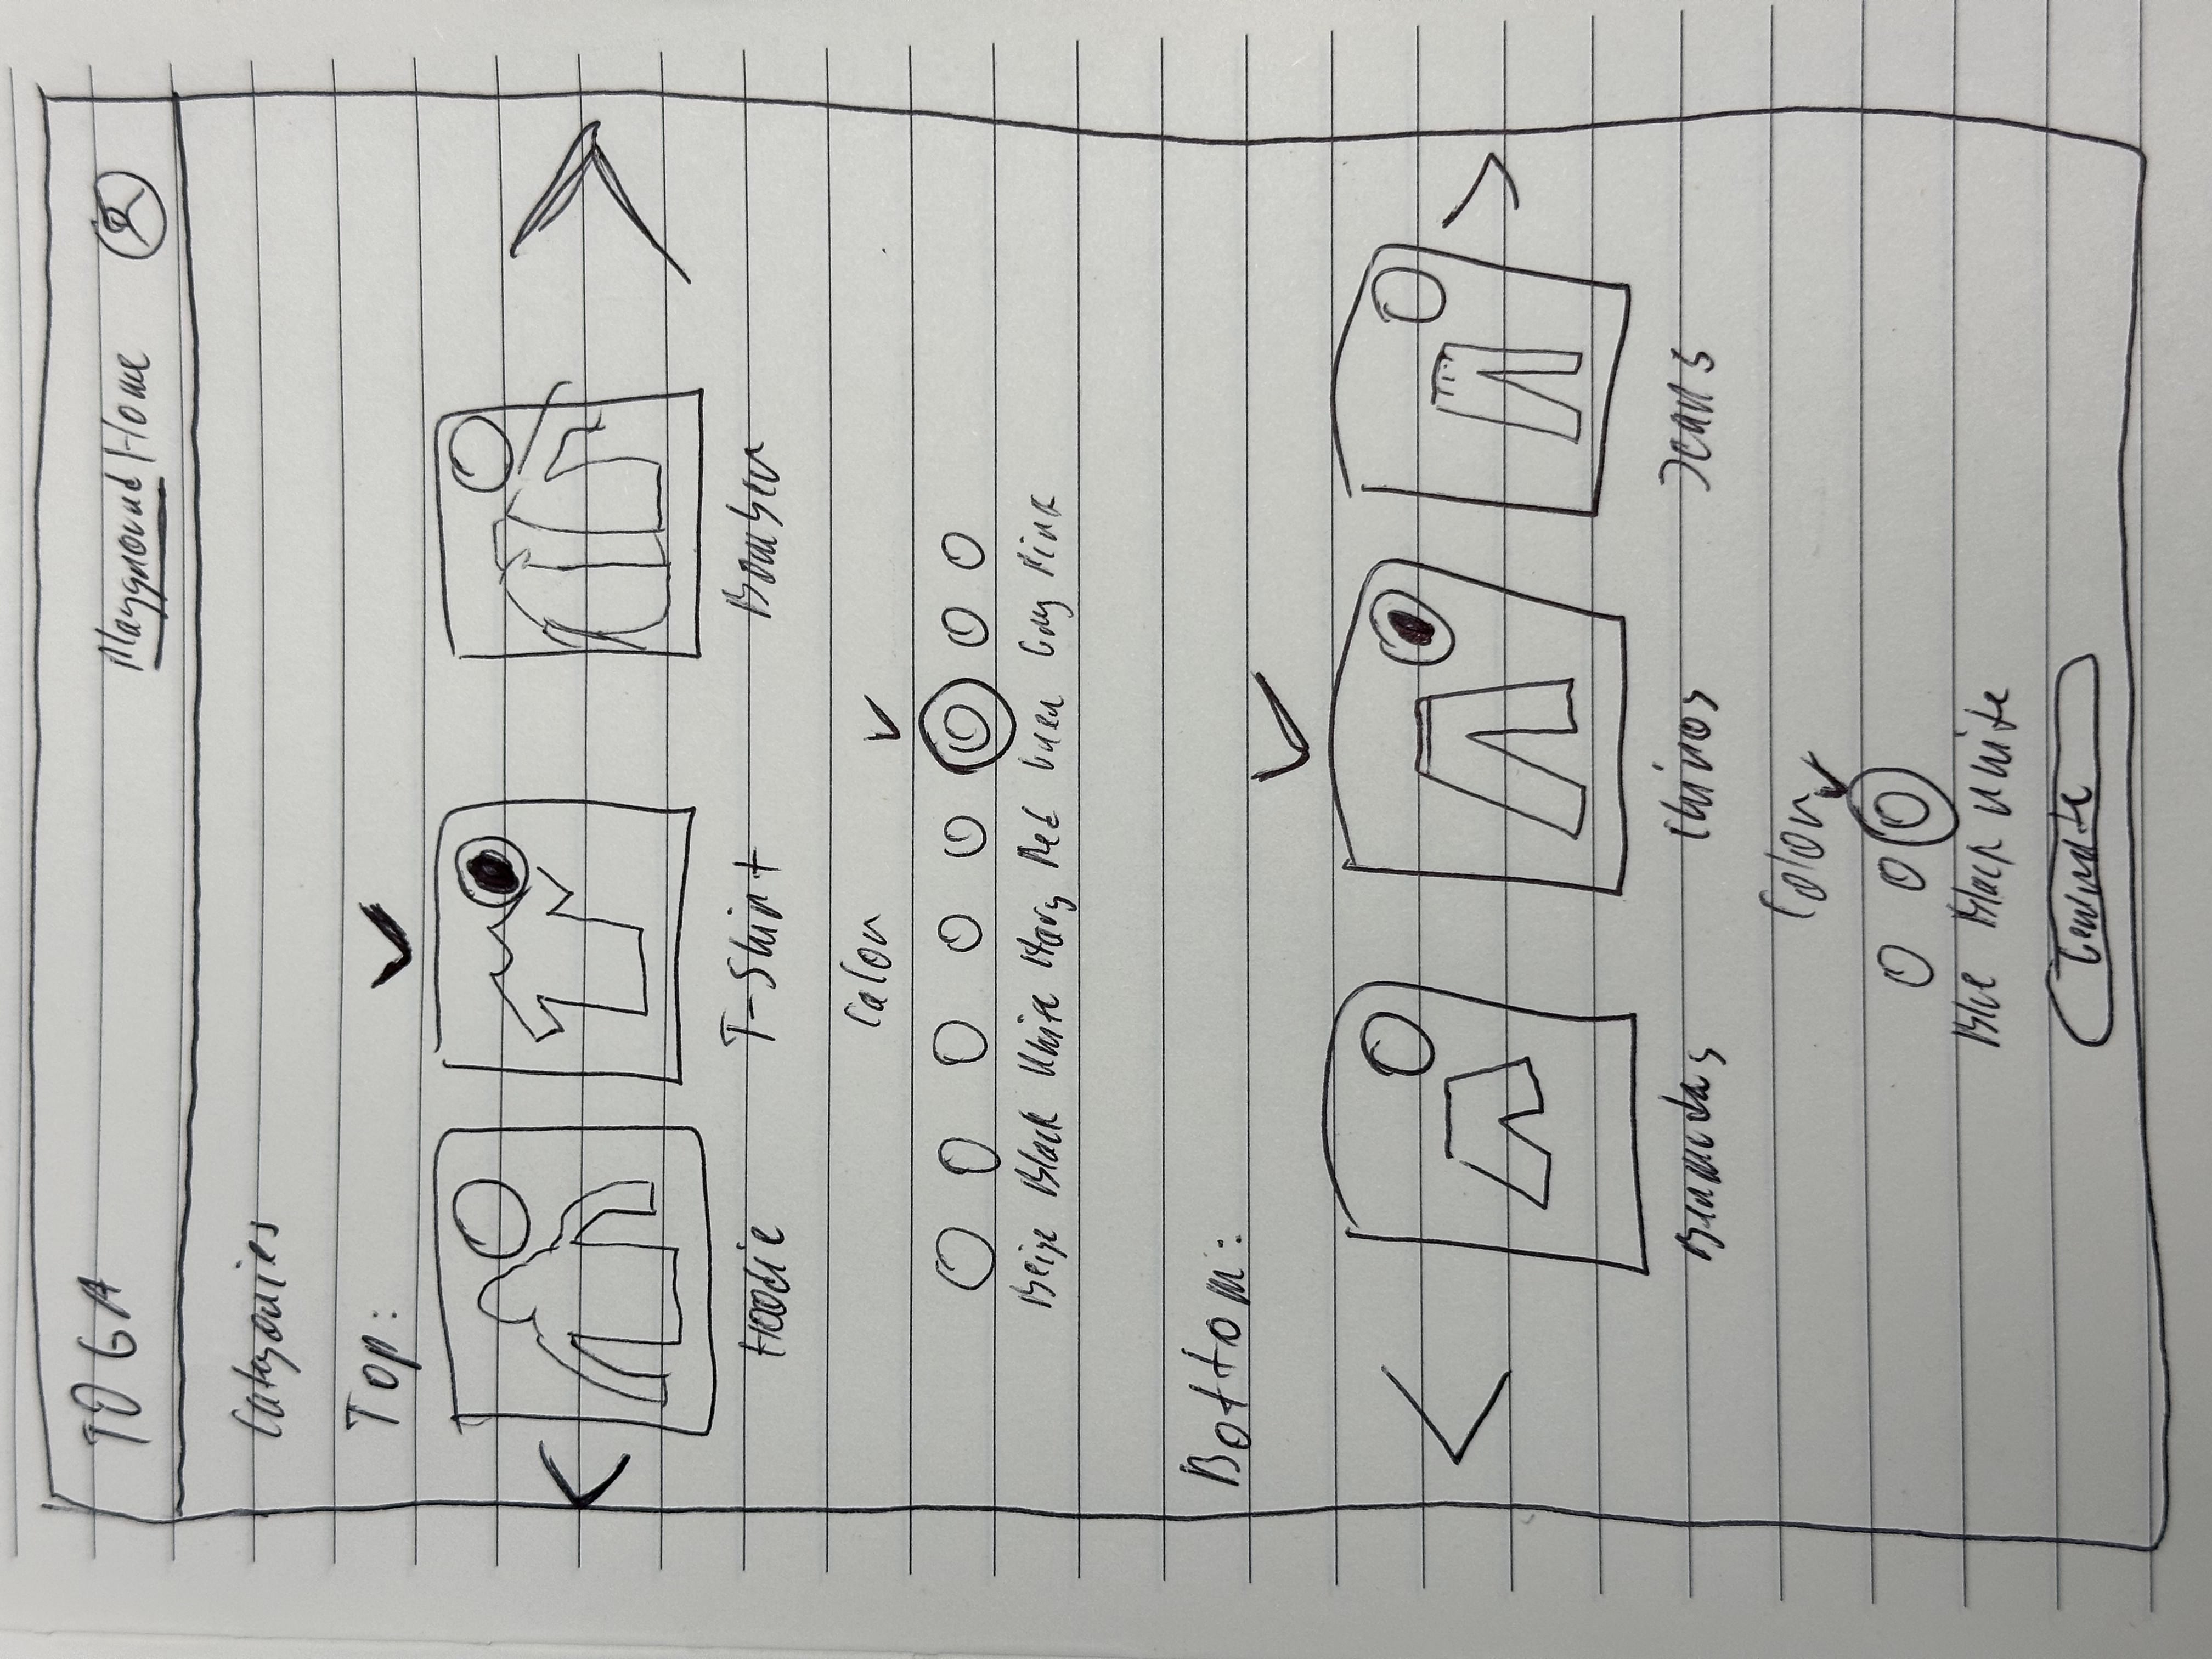 TOGA
Playground Home
Categories
Top:
Hoodie T-Shirt Bomber
Color
Beige Black White Navy Red Green Gray Pink
Bottom:
Bermudas Chinos Jeans
Color
Blue Black White
Generate